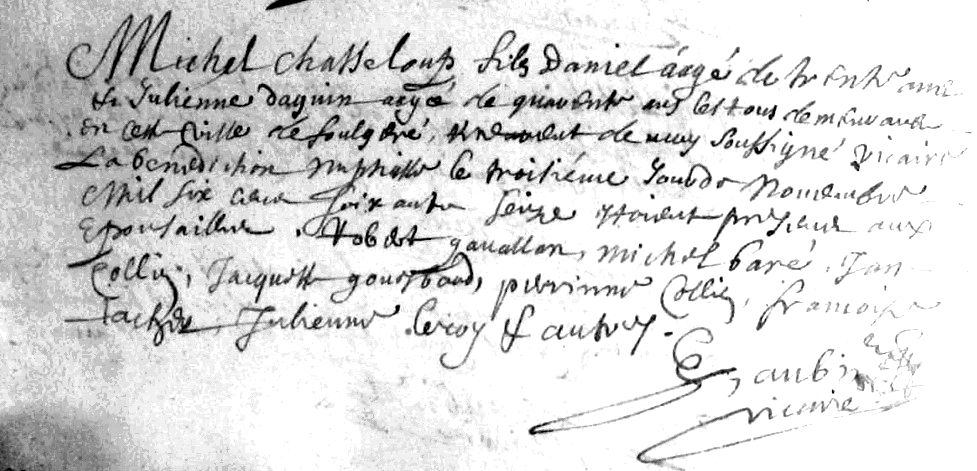 Michel Chasseloup fils Daniel aagé de trente ans
& Julienne Daguin aagée de quarente ans les tous demeurans
en cette ville de foulgeré, de moy soussigné vicaire
La benediction nuptialle le troisiéme Jour de Nouembre
Mil six cens soixante seize estoient presens aux
Epousailles. Robert gauallan, michel baré, Jan
Collin, Jacquette, perrinne Collin, françoise
Julienne Leroy & autres.
G aubin
vicaire